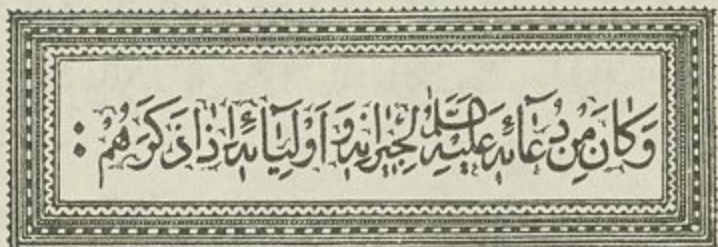 وَكَانَ مِنْ دُعَآئِهِ عَلَيْهِ السَّلَامُ لِجِيرَانِهِ وَ اَوْلِيَآئِهِ اِذَا ذَكَرَهُمْ :